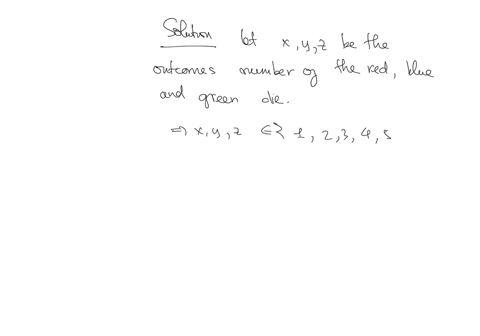 Solution let x, y, z be the
outcomes number of the red, blue
and green die.
⇒ x, y, z ∈ { 1, 2, 3, 4, 5